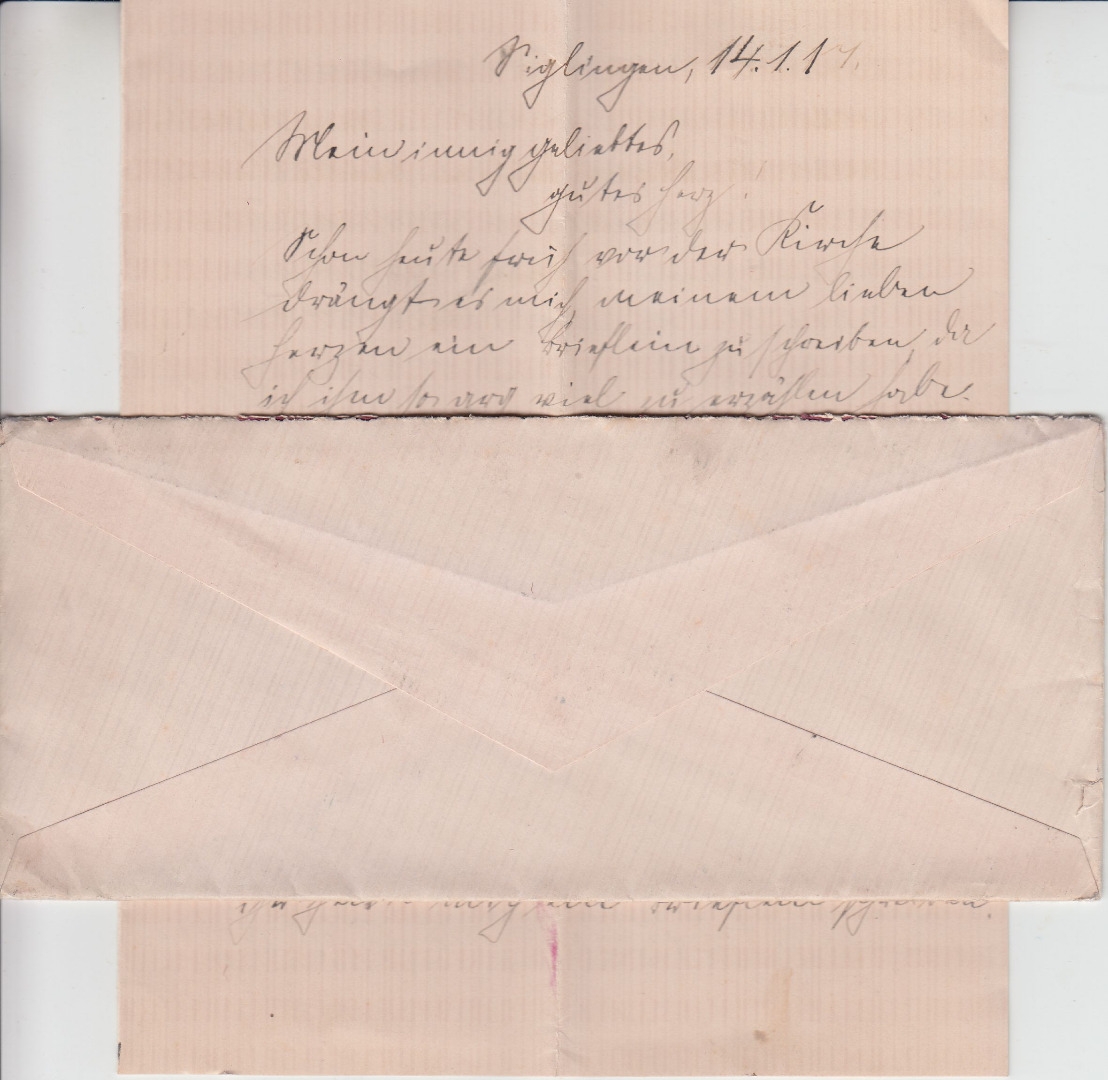 Siglingen, 14.1.17.
Mein innig geliebtes,
gutes Herz!
Schon heute früh vor der Kirche
drängt es mich, meinem lieben
Herzen ein Brieflein zu schreiben, da
ich ihm so arg viel zu erzählen habe.
noch ein Brieflein schreiben.